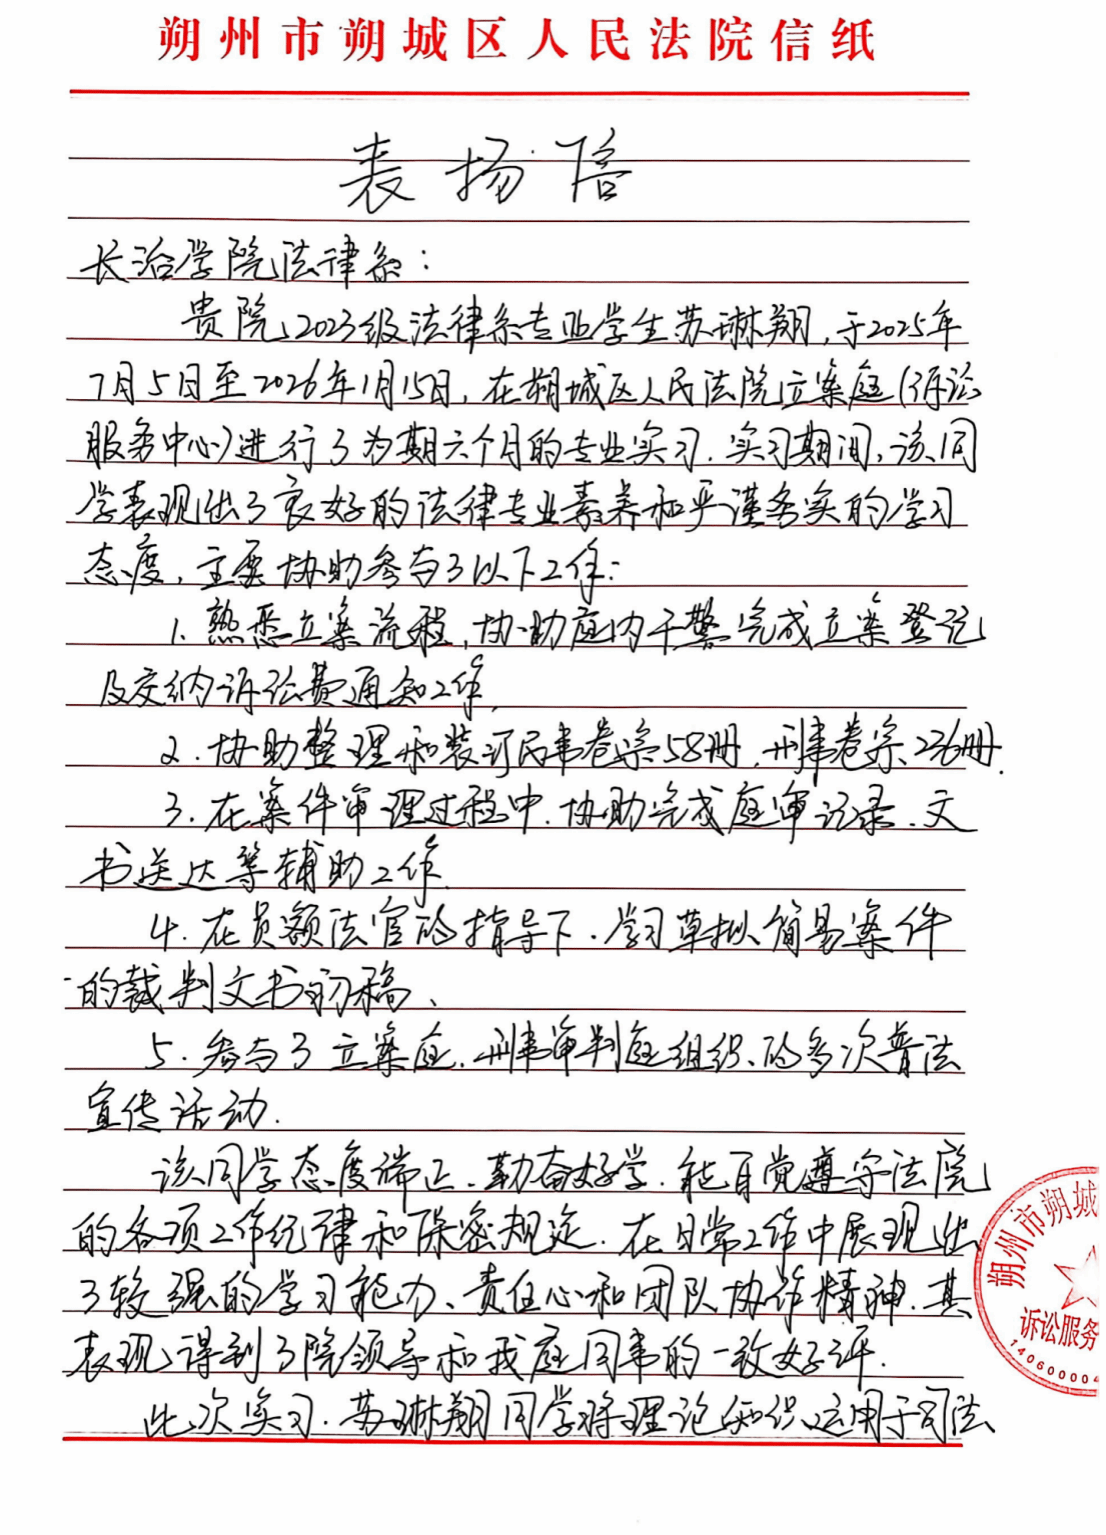 朔州市朔城区人民法院信纸
表扬信
长治学院法律系：
贵院2023级法律系专业学生苏琳翔，于2025年
7月5日至2026年1月15日，在朔城区人民法院立案庭（诉讼
服务中心）进行了为期六个月的专业实习．实习期间，该同
学表现出了良好的法律专业素养和严谨务实的学习
态度，主要协助参与了以下工作：
1．熟悉立案流程，协助庭内干警完成立案登记
及交纳诉讼费通知工作．
2．协助整理和装订民事卷宗58册，刑事卷宗236册．
3．在案件审理过程中．协助完成庭审记录、文
书送达等辅助工作．
4．在员额法官的指导下．学习草拟简易案件
的裁判文书初稿、
5．参与了立案庭．刑事审判庭组织的多次普法
宣传活动．
该同学态度端正．勤奋好学．能自觉遵守法院
的各项工作纪律和保密规定．在日常工作中展现出
了较强的学习能力、责任心和团队协作精神．其
表现得到了院领导和我庭同事的一致好评．
此次实习．苏琳翔同学将理论知识运用于司法
朔州市朔城
诉讼服务
140600004